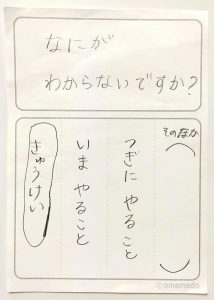 なにが
わからないですか?
そのなか
つぎに やること
いま やること
きゅうけい
©omemedo